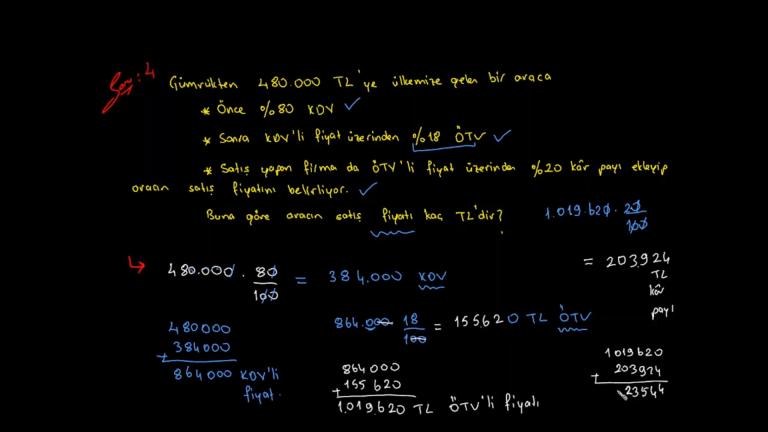 Soru: 4
Gümrükten 480.000 TL'ye ülkemize gelen bir araca
* Önce %80 KDV ✓
* Sonra KDV'li fiyat üzerinden %18 ÖTV ✓
* Satış yapan firma da ÖTV'li fiyat üzerinden %20 kâr payı ekleyip
aracın satış fiyatını belirliyor. ✓
Buna göre aracın satış fiyatı kaç TL'dir?
1.019.620 . 20/100
= 203924 TL kâr payı
↳ 480.000 . 80/100 = 384.000 KDV
864.000 18/100 = 155620 TL ÖTV
480000
+ 384000
864000 KDV'li
fiyat.
864000
+ 155620
1.019.620 TL ÖTV'li fiyatı
1019620
+ 203924
23544